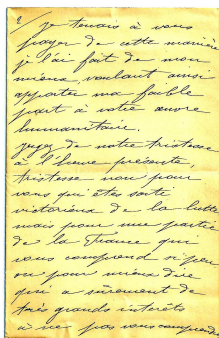 2/ je tenais à vous
payer de cette manière
je l'ai fait de mon
mieux voulant ainsi
apporter ma faible
part à votre œuvre
humanitaire.
Jugez de notre tristesse
à l'heure présente,
tristesse non pour
vous qui êtes sorti
victorieux de la lutte
mais pour une partie
de la France qui
vous comprend si peu
ou pour mieux dire
qui a sûrement de
très grands intérêts
à ne pas vous comprendre